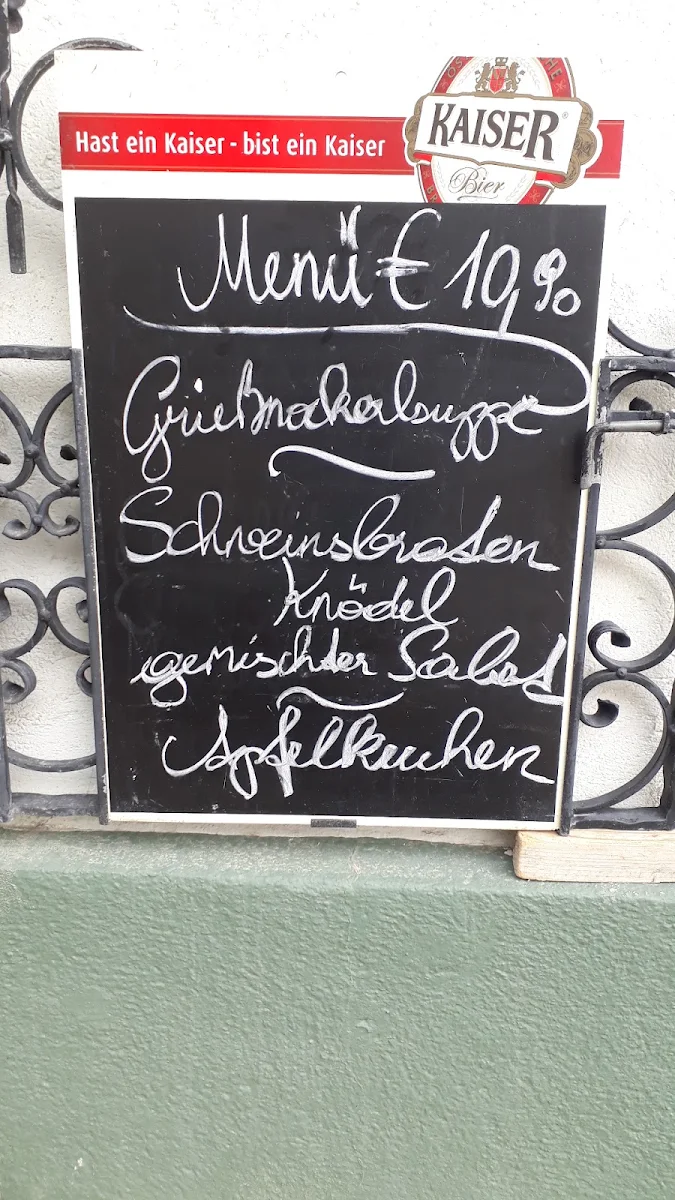 Hast ein Kaiser - bist ein Kaiser
KAISER
Bier
Menü € 10,90
Grießnockerlsuppe
Schweinsbraten
Knödel
gemischter Salat
Apfelkuchen